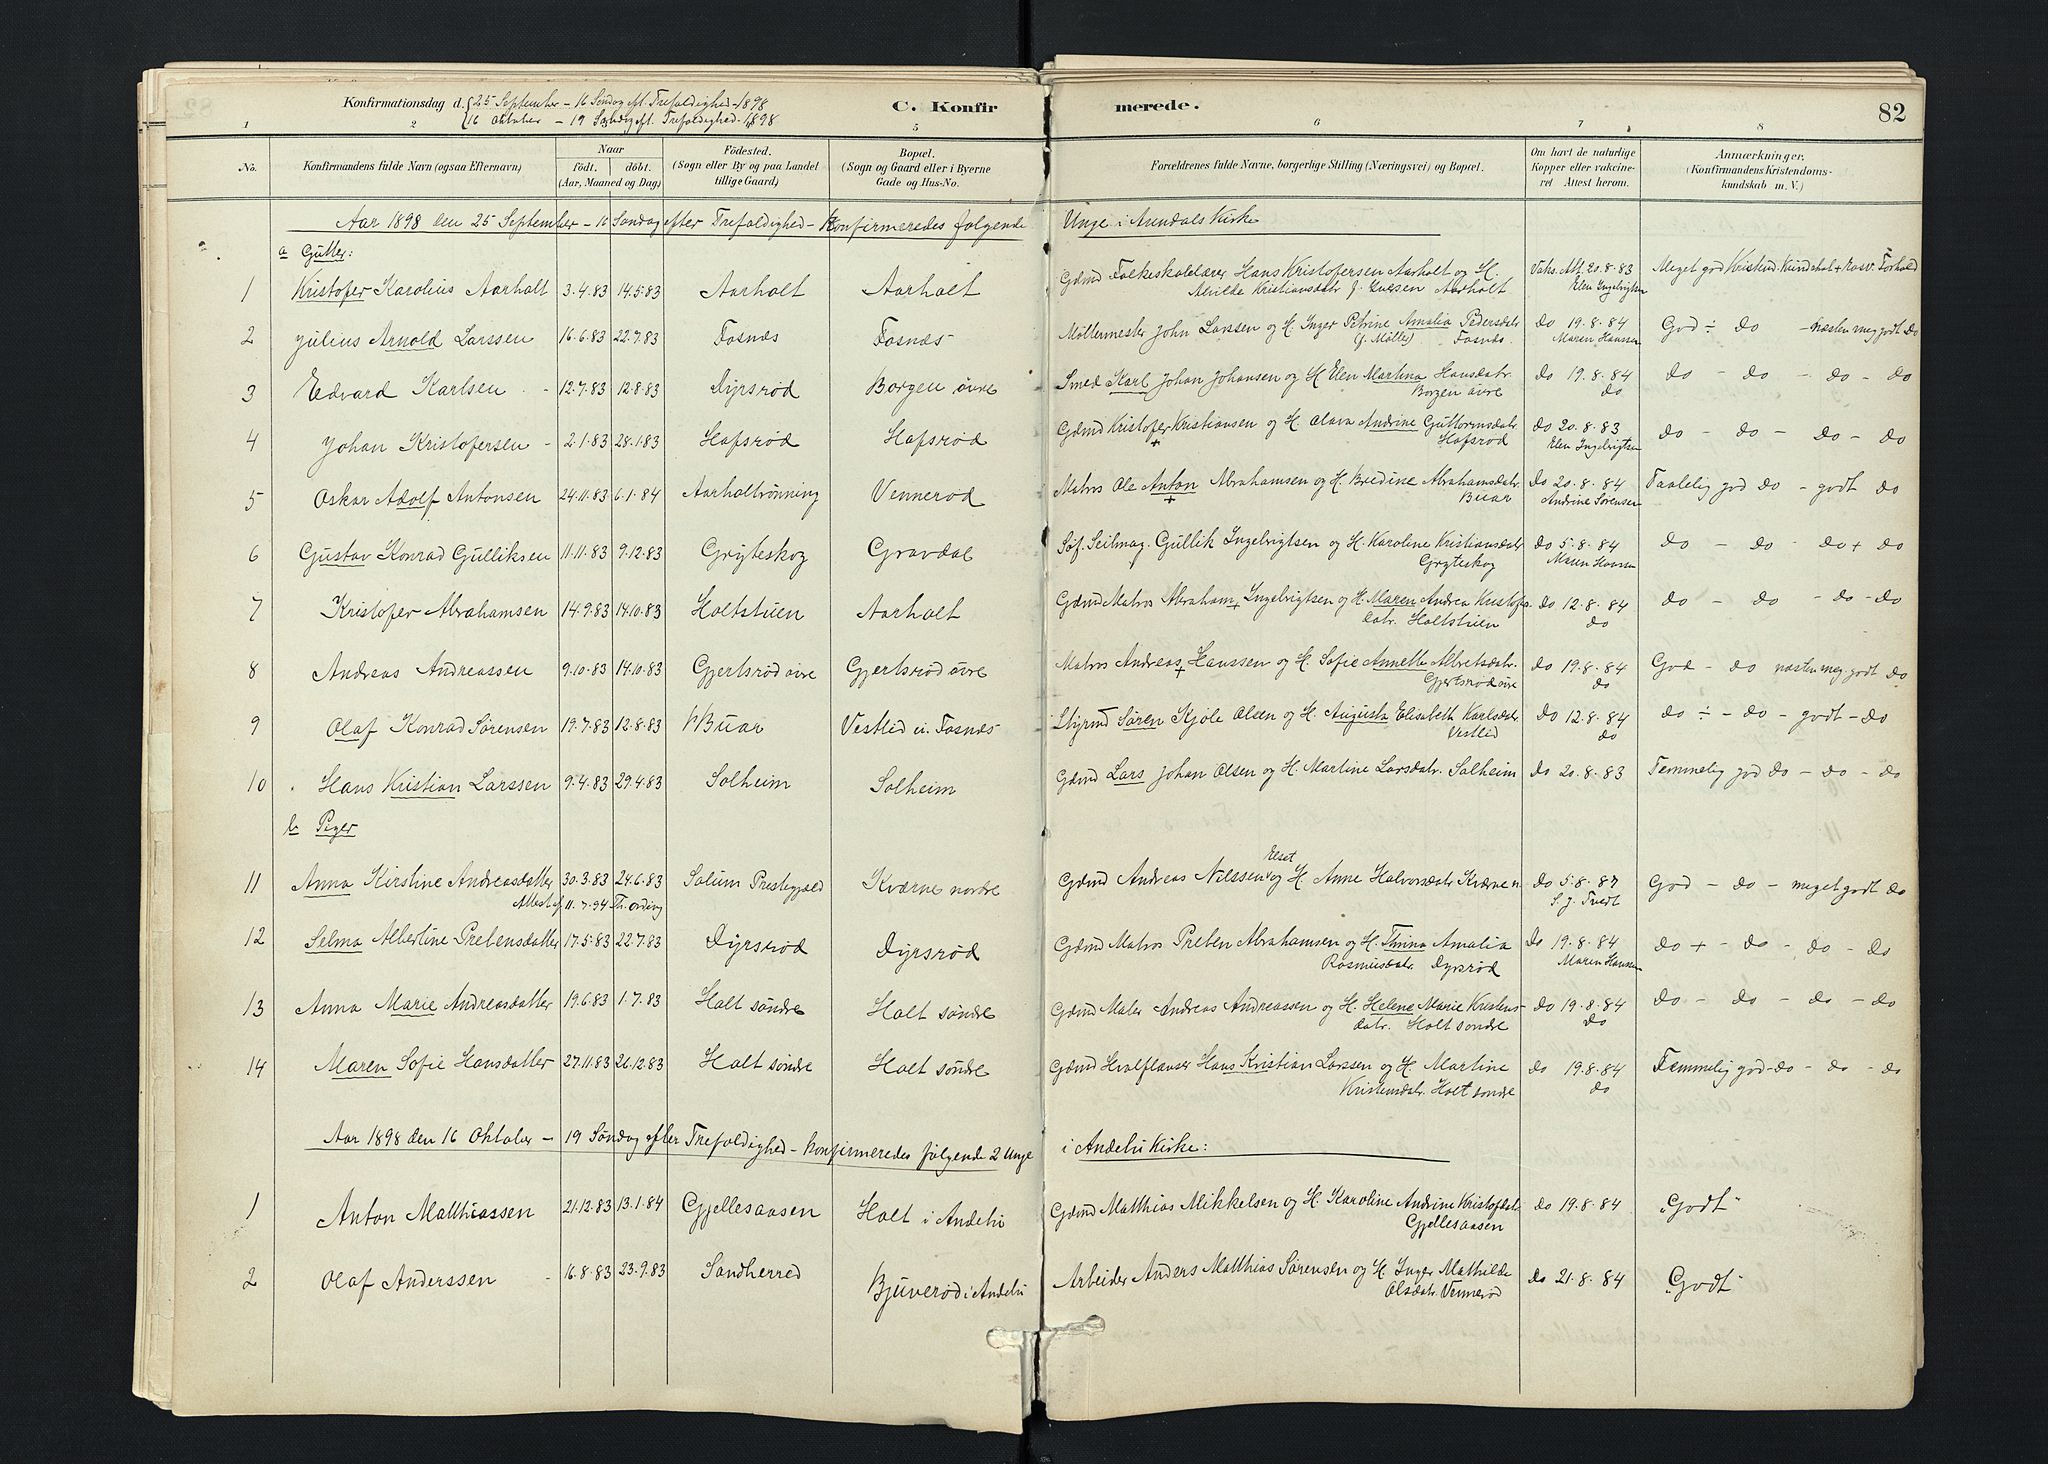 Konfirmationsdag d. {25 September – 16 Søndag eft. Trefoldighed – 1898
{16 Oktober – 19 Søndag eft. Trefoldighed – 1898
C. Konfirmerede.
82
1 2 3 4 5 6 7 8
No. Konfirmandens fulde Navn (ogsaa Efternavn) Naar födt. döbt. (Aar, Maaned og Dag) Födested. (Sogn eller By og paa Landet tillige Gaard.) Bopæl. (Sogn og Gaard eller i Byerne Gade og Hus-No. Forældrenes fulde Navne, borgerlige Stilling (Næringsvei) og Bopæl. Om havt de naturlige Kopper eller vakcineret Attest herom. Anmærkninger. (Konfirmandens Kristendomskundskab m. V.)
Aar 1898 den 25 September – 16 Søndag efter Trefoldighed – Konfirmeredes følgende Unge i Kirke
a Gutter:
1 Kristofer Karolius Aarholt 3.4.83 14.5.83 Aarholt Aarholt Gdmd Folkeskolelærer Hans Kristofersen Aarholt og H. Kristiansdatr Aarholt Vaks. Att. 20.8.83 Elen Ingelrigtsen Meget god Kristend. Kundskab + Forhold
2 Julius Arnold Larssen 16.6.83 22.7.83 Fosnæs Fosnæs Møllermester John Larssen og H. Inger Petrine Amalia Pedersdatr (g. Møller) Fosnæs. do 19.8.84 Maren Hanssen God ÷ do – næsten meg godt do
3 Edvard Karlsen 12.7.83 12.8.83 Dyrsrød Borgen øvre Smed Karl Johan Johansen og H Elen Martina Hansdatr. Borgen øvre do 19.8.84 do do – do – do – do
4 Johan Kristofersen 2.1.83 28.1.83 Hafsrød Hafsrød Gdmd Kristofer + Kristiansen og H. Olava Andrine Guttormsdatr Hafsrød do 20.8.83 Elen Ingelrigtsen do – do – do – do
5 Oskar Adolf Antonsen 24.11.83 6.1.84 Aarholtrønning Vennerød Matros Ole Anton + Abrahamsen og H. Bredine Abrahamsdatr. Buar do 20.8.84 Andrine Sørensen Taalelig god do – godt do
6 Gustav Konrad Gulliksen 11.11.83 9.12.83 Gryteskog Gravdal Søf. Seilmag. Gullik Ingelvigtsen og H. Karoline Kristiansdatr Gryteskog do 5.8.84 Maren Hanssen do – do – do + do
7 Kristofer Abrahamsen 14.9.83 14.10.83 Holtstuen Aarholt Gdmd Matros Abraham + Ingelvigtsen og H. Maren Andrea Kristofersdatr. Holtstuen do 12.8.84 do do – do – do – do
8 Andreas Andreassen 9.10.83 14.10.83 Gjertsrød øvre Gjertsrød øvre Matros Andreas + Hanssen og H. Sofie Annette Albretsdatr. Gjertsrød øvre do 19.8.84 do God – do næsten meg godt do
9 Olaf Konrad Sørensen 19.7.83 12.8.83 Buar Vestlid u. Fosnæs Styrmd Søren Kjøle Olsen og H. Augusta Elisabeth Karlsdatr Vestlid do 12.8.84 do do ÷ – do – godt – do
10 Hans Kristian Larssen 9.4.83 29.4.83 Solheim Solheim Gdmd Lars Johan Olsen og H. Martine Larsdatr. Solheim do 20.8.83 Temmelig god do – do – do
b Piger
11 Anna Kirstine Andreasdatter 30.3.83 24.6.83 Solum Prestegjæld Kværne nordre Gdmd Andreas Nilssen og H Elset Anne Halvorsdatr Kværne n. do 5.8.87 S. J. Tvedt God – do – meget godt do
Attest af 11.7.94
12 Selma Albertine Prebensdatter 17.5.83 22.7.83 Dyrsrød Dyrsrød Gdmd Matros Preben Abrahamsen og H. Thrina Amalia Rasmusdatr. Dyrsrød do 19.8.84 Maren Hanssen do + – do – do – do
13 Anna Marie Andreasdatter 19.6.83 1.7.83 Holt søndre Holt søndre Gdmd Maler Andreas Andreassen og H. Helene Marie Kristensdatr. Holt søndre do 19.8.84 do do – do – do – do
14 Maren Sofie Hansdatter 27.11.83 26.12.83 Holt søndre Holt søndre Gdmd Hvalflanser Hans Kristian Larssen og H. Martine Kristensdatr. Holt søndre do 19.8.84 do Temmelig god – do – do – do
Aar 1898 den 16 Oktober – 19 Søndag efter Trefoldighed – konfirmeredes følgende 2 Unge i Andebu Kirke:
1 Anton Matthiassen 21.12.83 13.1.84 Gjellesaasen Holt i Andebu Gdmd Matthias Mikkelsen og H. Karoline Andrine Kristofdatr Gjellesaasen do 19.8.84 „Godt“
2 Olaf Anderssen 16.8.83 23.9.83 Sandherred Bjuverød i Andebu Arbeider Anders Matthias Sørensen og H. Inger Mathilde Olsdatr. Vennerød do 21.8.84 „Godt“